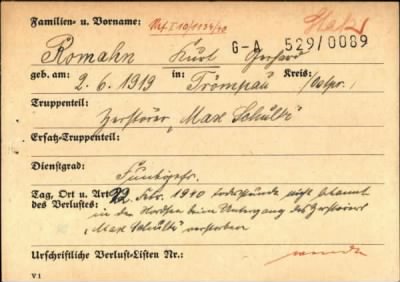 Familien- u. Vorname: Urf. I 10/1134/40
Romahn Kurt Gerhard G-A 529/0089
geb. am: 2.6.1919 in: Trömpau Kreis: /Ostpr./
Truppenteil:
Zerstörer „Max Schultz"
Ersatz-Truppenteil:
Dienstgrad:
Funkgefr.
Tag, Ort u. Art 22. Febr. 1940 Todesstunde nicht bekannt
des Verlustes: in der Nordsee beim Untergang des Zerstörers
„Max Schultz" verstorben
Urschriftliche Verlust-Listen Nr.: wenden
V 1